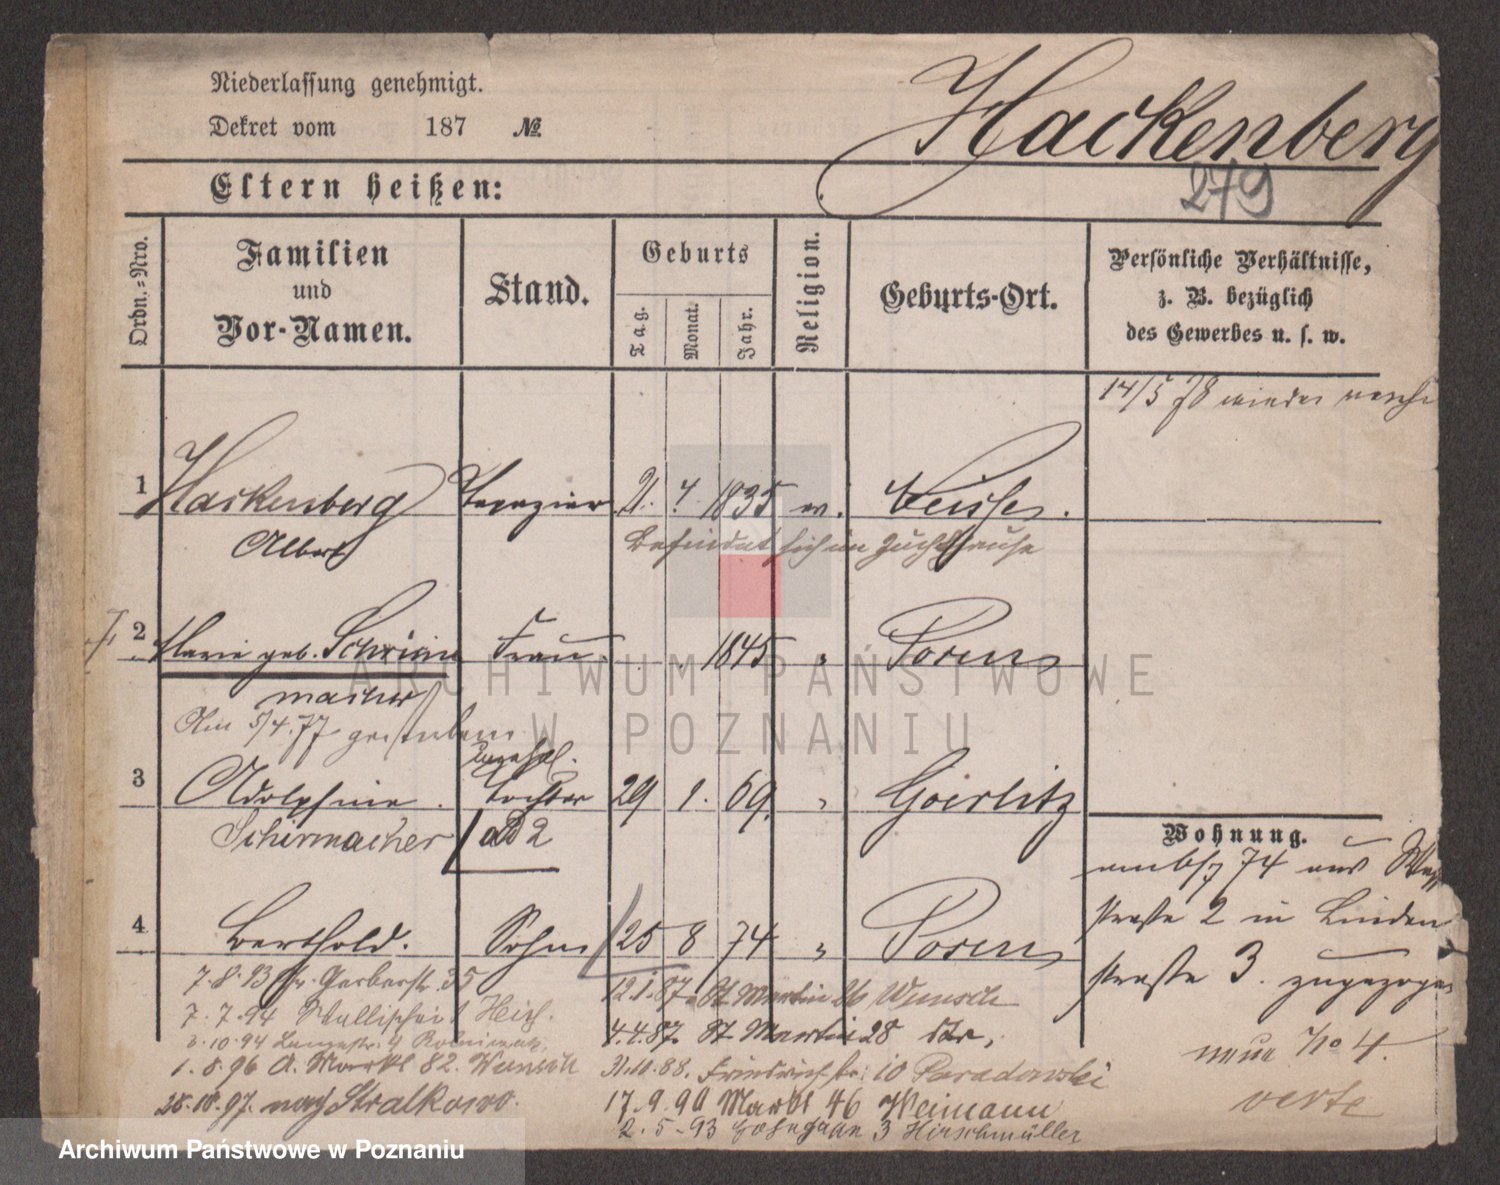 Niederlassung genehmigt.
Dekret vom 187 №
Hackenberg
279
Eltern heißen:
Ordn.-Nro.
Familien
und
Vor-Namen.
Stand.
Geburts
Tag.
Monat.
Jahr.
Religion.
Geburts-Ort.
Persönliche Verhältnisse,
z. B. bezüglich
des Gewerbes u. s. w.
14/5 78 wieder
1 Hackenberg Tapezier 21. 4. 1835 ev.
Albert
Befindet sich im Zuchthause
2 Marie geb. Schirm Frau 1845 " Posen
macher
Am 5/4.77 gestorben
unehel.
3 Adolphine Tochter 29 1. 69. " Goerlitz
Schirmacher ad 2
Wohnung.
74 aus
straße 2 in Linden
straße 3. zugezogen
neue No 4.
verte
4 Berthold. Sohn 25 8 74 " Posen
7.8.93 Gr. Gerberstr. 35
7.7.94 Wallischei 1
3.10.94
1.8.96 A. Markt 82. Wunsch
nach Stralkowo.
12.1.87. St Martin 26 Wunsch
4.4.87. St Martin 28 dto.
31.10.88. Friedrichstr. 10 Paradowski
17.9.90 Markt 46 Weimann
2.5.93 3 Hirschmüller
ARCHIWUM PAŃSTWOWE
W POZNANIU
Archiwum Państwowe w Poznaniu